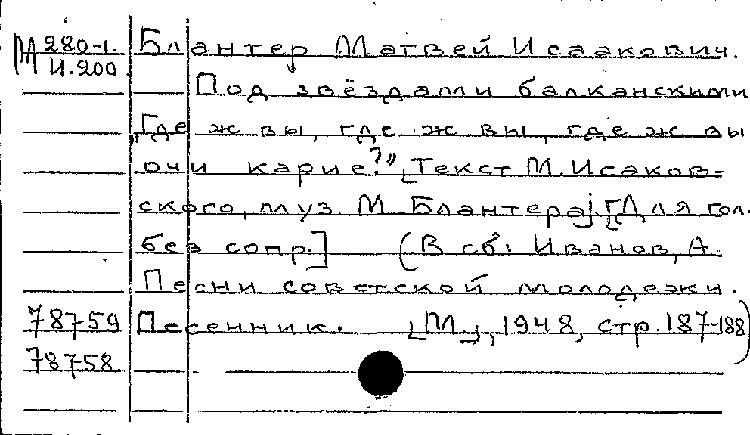 М 280-1. Блантер Матвей Исаакович.
И.200
Под звёздами балканскими
„Где ж вы, где ж вы, где ж вы
очи карие?" [Текст М. Исаков-
ского, муз М. Блантера]. [Для гол.
без сопр.] (В сб: Иванов, А.
Песни советской молодежи.
78759 Песенник. [М.], 1948, стр. 187-188)
78758